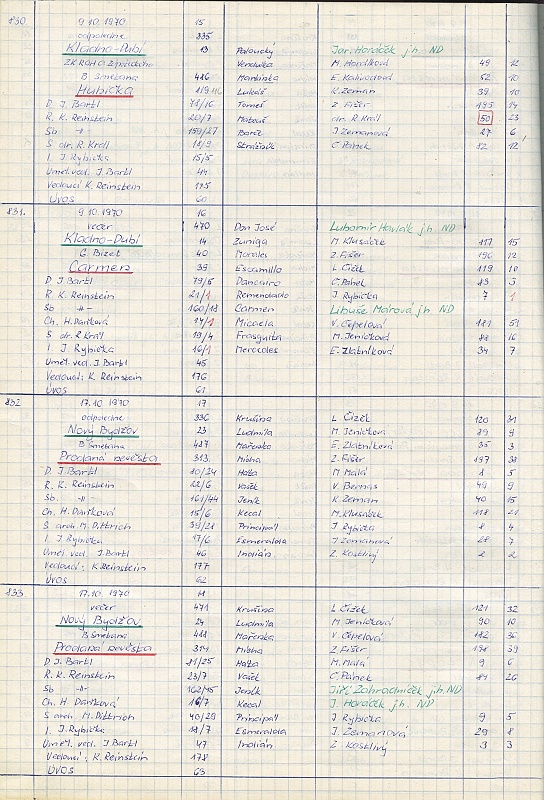 830 9.10.1970 15
odpoledne 335
Kladno-Dubí 13 Paloucký Jar. Horáček j.h. ND
ZKROH Vendulka M. Horálková 49 12
B. Smetana 486 Martinka E. Kalivodová 52 10
Hubička 119 Lukáš K. Zeman 39 10
D J. Bartl 78/16 Tomeš Z. Fišer 195 14
R. K. Reinstein 20/7 Matouš dr. R. Král 50 23
Sb -"- 159/27 Barče J. Zemanová 27 6
S dr. R. Král 18/9 Strážník C. Pánek 82 12
I J. Rybička 15/5
Uměl. ved. J. Bartl 44
Vedoucí K. Reinstein 175
ÚVOS 60
831. 9.10.1970 16
večer 470 Don José Lubomír Havlák j.h. ND
Kladno-Dubí 14 Zuniga M. Klusáček 117 15
G. Bizet 40 Morales Z. Fišer 196 12
Carmen 39 Escamillo L. Čížek 119 10
D J. Bartl 79/5 Dancairo C. Pánek 83 3
R. K. Reinstein 21/1 Remendado J. Rybička 7 1
Sb -"- 160/18 Carmen Libuše Márová j.h. ND
Ch. H. Dařková 14/1 Micaela V. Čepelová 181 51
S dr. R. Král 19/4 Frasquita M. Jeníčková 88 16
I. J. Rybička 16/1 Mercedes E. Zlatníková 34 7
Uměl. ved. J. Bartl 45
Vedoucí: K. Reinstein 176
ÚVOS 61
832 17.10.1970 17
odpoledne 336 Krušina L. Čížek 120 31
Nový Bydžov 23 Ludmila M. Jeníčková 89 9
B. Smetana 487 Mařenka E. Zlatníková 35 3
Prodaná nevěsta 313 Mícha Z. Fišer 197 38
D J. Bartl 10/24 Háta M. Malá 8 5
R. K. Reinstein 22/6 Vašek V. Bernas 49 9
Sb. -"- 161/44 Jeník K. Zeman 40 15
Ch. H. Dařková 15/6 Kecal M. Klusáček 118 21
S arch. M. Dittrich 39/28 Principál J. Rybička 8 4
I J. Rybička 17/6 Esmeralda J. Zemanová 28 7
Uměl. ved. J. Bartl 46 Indián Z. Kostlivý 2 2
Vedoucí: K. Reinstein 177
ÚVOS 62
833 17.10.1970 H
večer 471 Krušina L. Čížek 121 32
Nový Bydžov 24 Ludmila M. Jeníčková 90 10
B. Smetana 488 Mařenka V. Čepelová 182 36
Prodaná nevěsta 314 Mícha Z. Fišer 198 39
D J. Bartl 81/25 Háta M. Malá 9 6
R. K. Reinstein 23/7 Vašek C. Pánek 84 26
Sb -"- 162/45 Jeník Jiří Zahradníček j.h. ND
Ch. H. Dařková 16/7 Kecal J. Horáček j.h. ND
S arch. M. Dittrich 40/29 Principál J. Rybička 9 5
I. J. Rybička 18/7 Esmeralda J. Zemanová 29 8
Uměl. ved. J. Bartl 47 Indián Z. Kostlivý 3 3
Vedoucí: K. Reinstein 178
ÚVOS 63